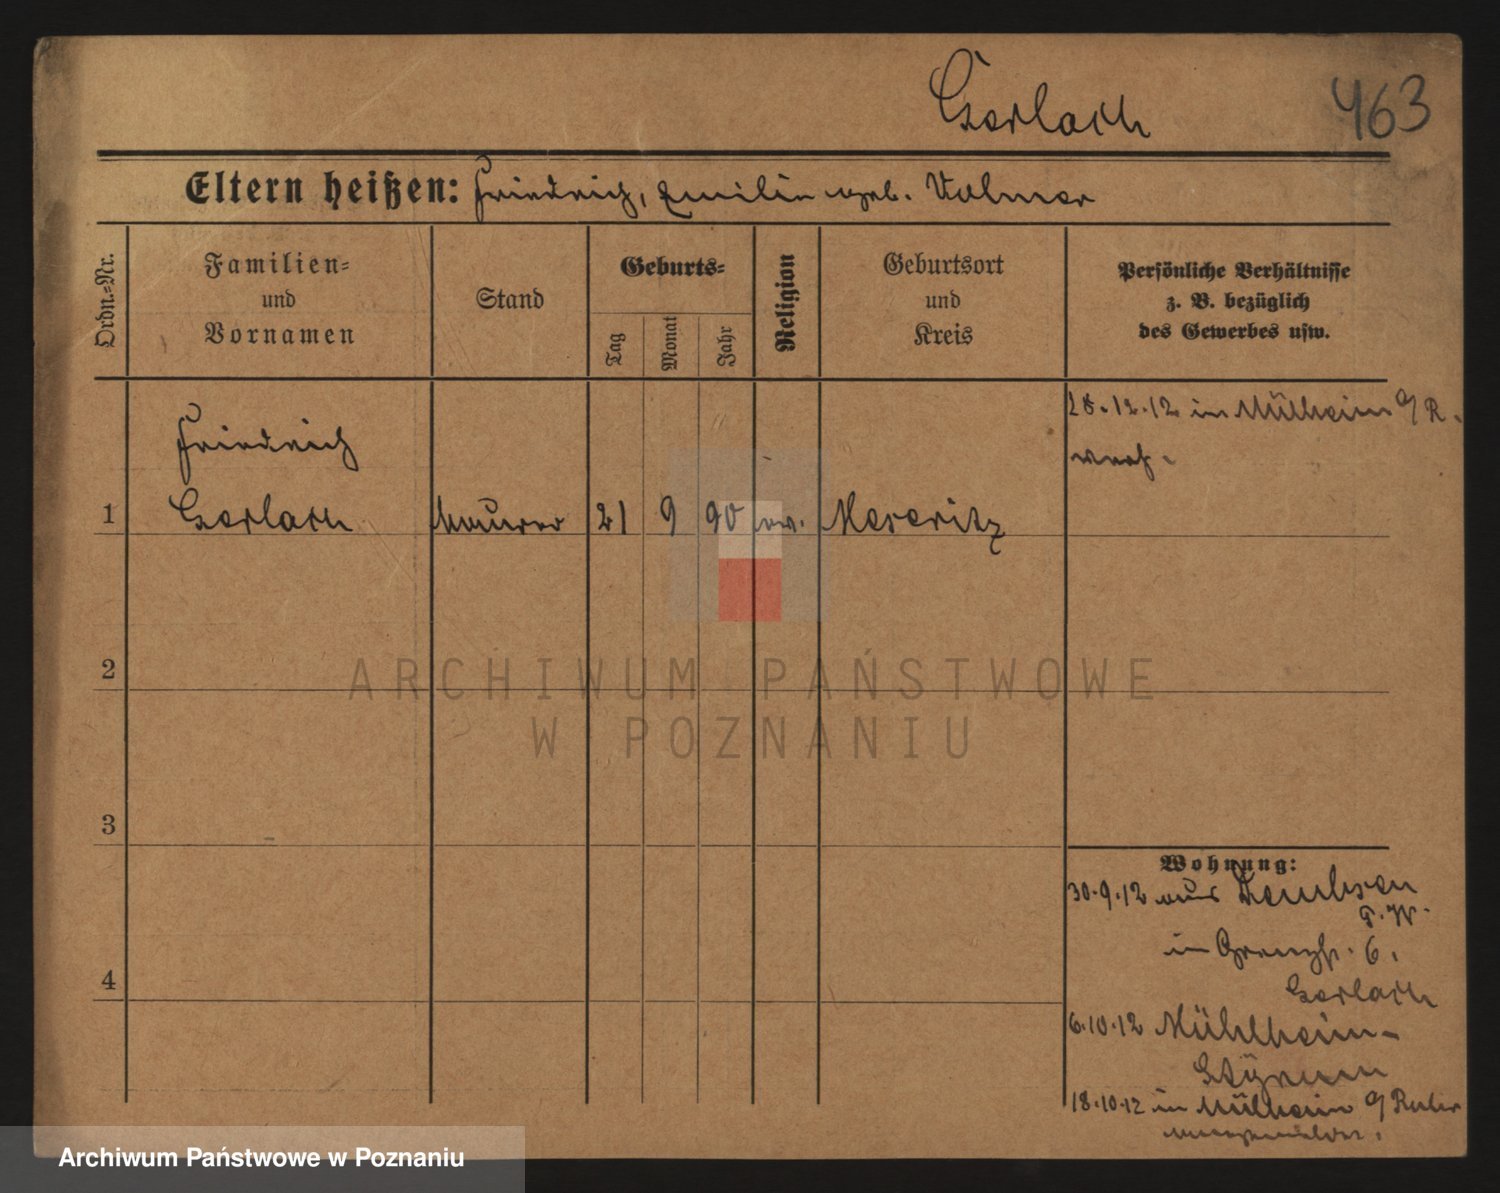 Gerlach 463
Eltern heißen: Friedrich, Emilie geb. Volmer
Ordn.=Nr.
Familien=
und
Vornamen
Stand
Geburts=
Tag
Monat
Jahr
Religion
Geburtsort
und
Kreis
Persönliche Verhältnisse
z. B. bezüglich
des Gewerbes usw.
28.12.12 in Mülheim a/R.
Friedrich
1 Gerlach Maurer 21 9 90 ev. Meseritz
2
3
4
Wohnung:
30.9.12 aus
in Grenzstr. 6.
Gerlach
6.10.12 Mühlheim-
Styrum
18.10.12 in Mülheim a/Ruhr
ARCHIWUM PAŃSTWOWE
W POZNANIU
Archiwum Państwowe w Poznaniu